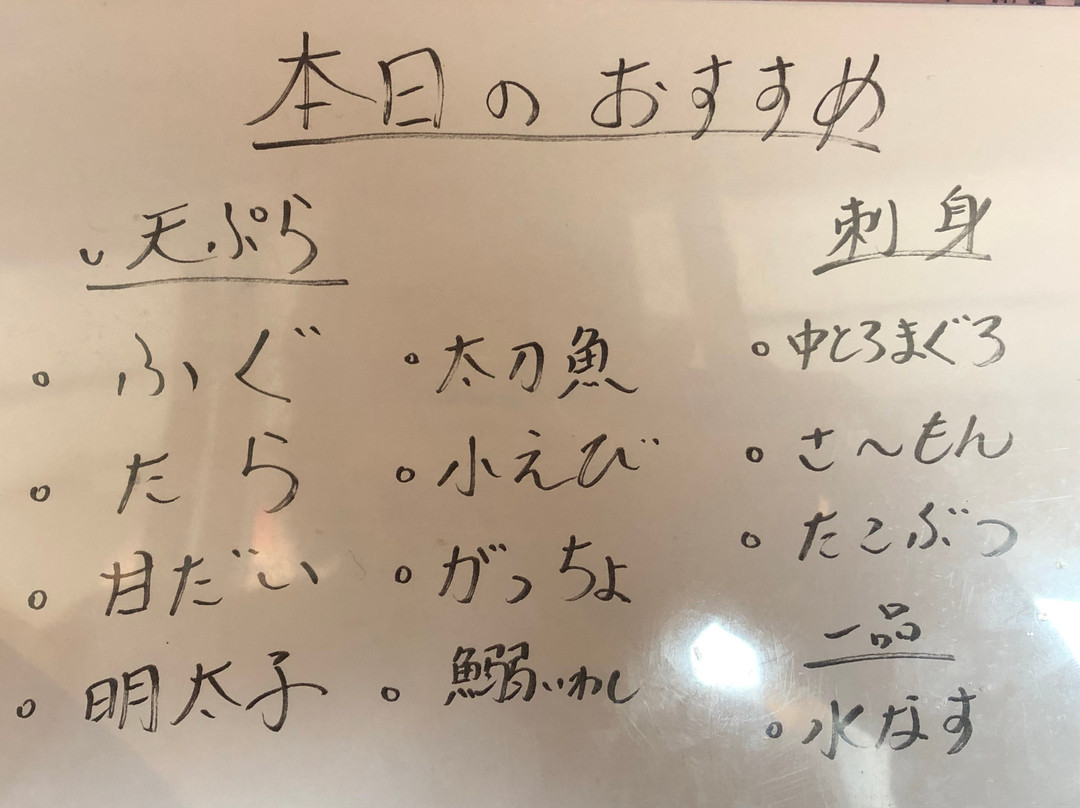 本日のおすすめ
天ぷら
ふぐ
たら
目だい
明太子
太刀魚
小えび
がっちょ
鰯いわし
刺身
中とろまぐろ
さ〜もん
たこぶつ
一品
水なす